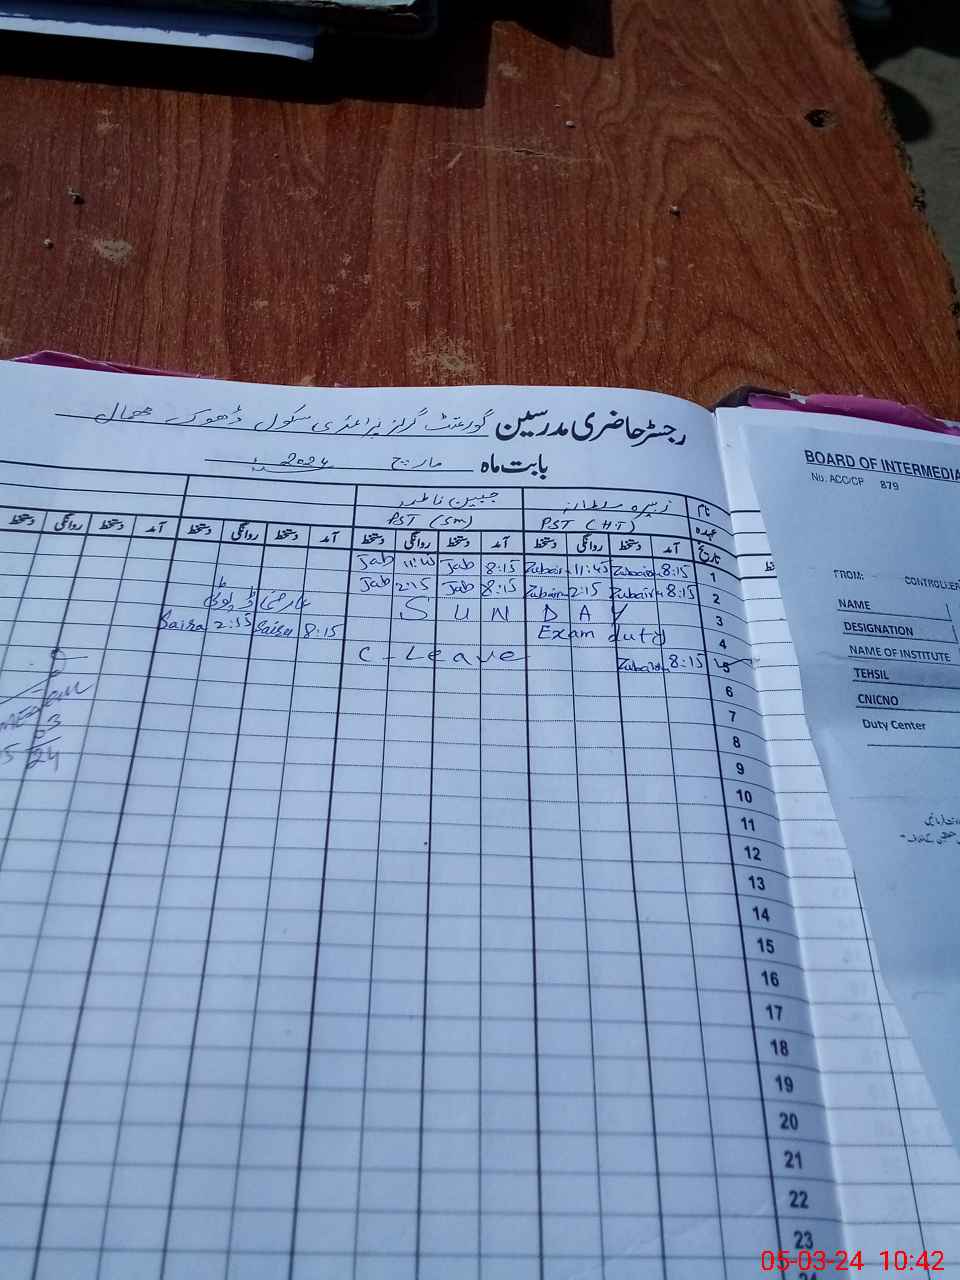 رجسٹر حاضری مدرسین گورنمنٹ گرلز پرائمری سکول ڈھوک
بابت ماہ مارچ 2024
نام زبیرہ سلطانہ جبین فاطمہ
عہدہ PST (HT) PST (SM)
تاریخ آمد دستخط روانگی دستخط آمد دستخط روانگی دستخط آمد دستخط روانگی دستخط آمد دستخط روانگی دستخط
1 8:15 Zubaira 11:45 Zubaira 8:15 Jab Jab
2 8:15 Zubaira 2:15 Zubaira 8:15 Jab 2:15 Jab
3 SUNDAY عارضی ڈیوٹی
4 Exam duty 8:15 Saira 2:15 Saira
5 8:15 Zubaira C-Leave
6
7
8
9
10
11
12
13
14
15
16
17
18
19
20
21
22
23
24
BOARD OF INTERMEDIA
No. ACC/CP 879
FROM: CONTROLLER
NAME
DESIGNATION
NAME OF INSTITUTE
TEHSIL
CNICNO
Duty Center
05-03-24 10:42